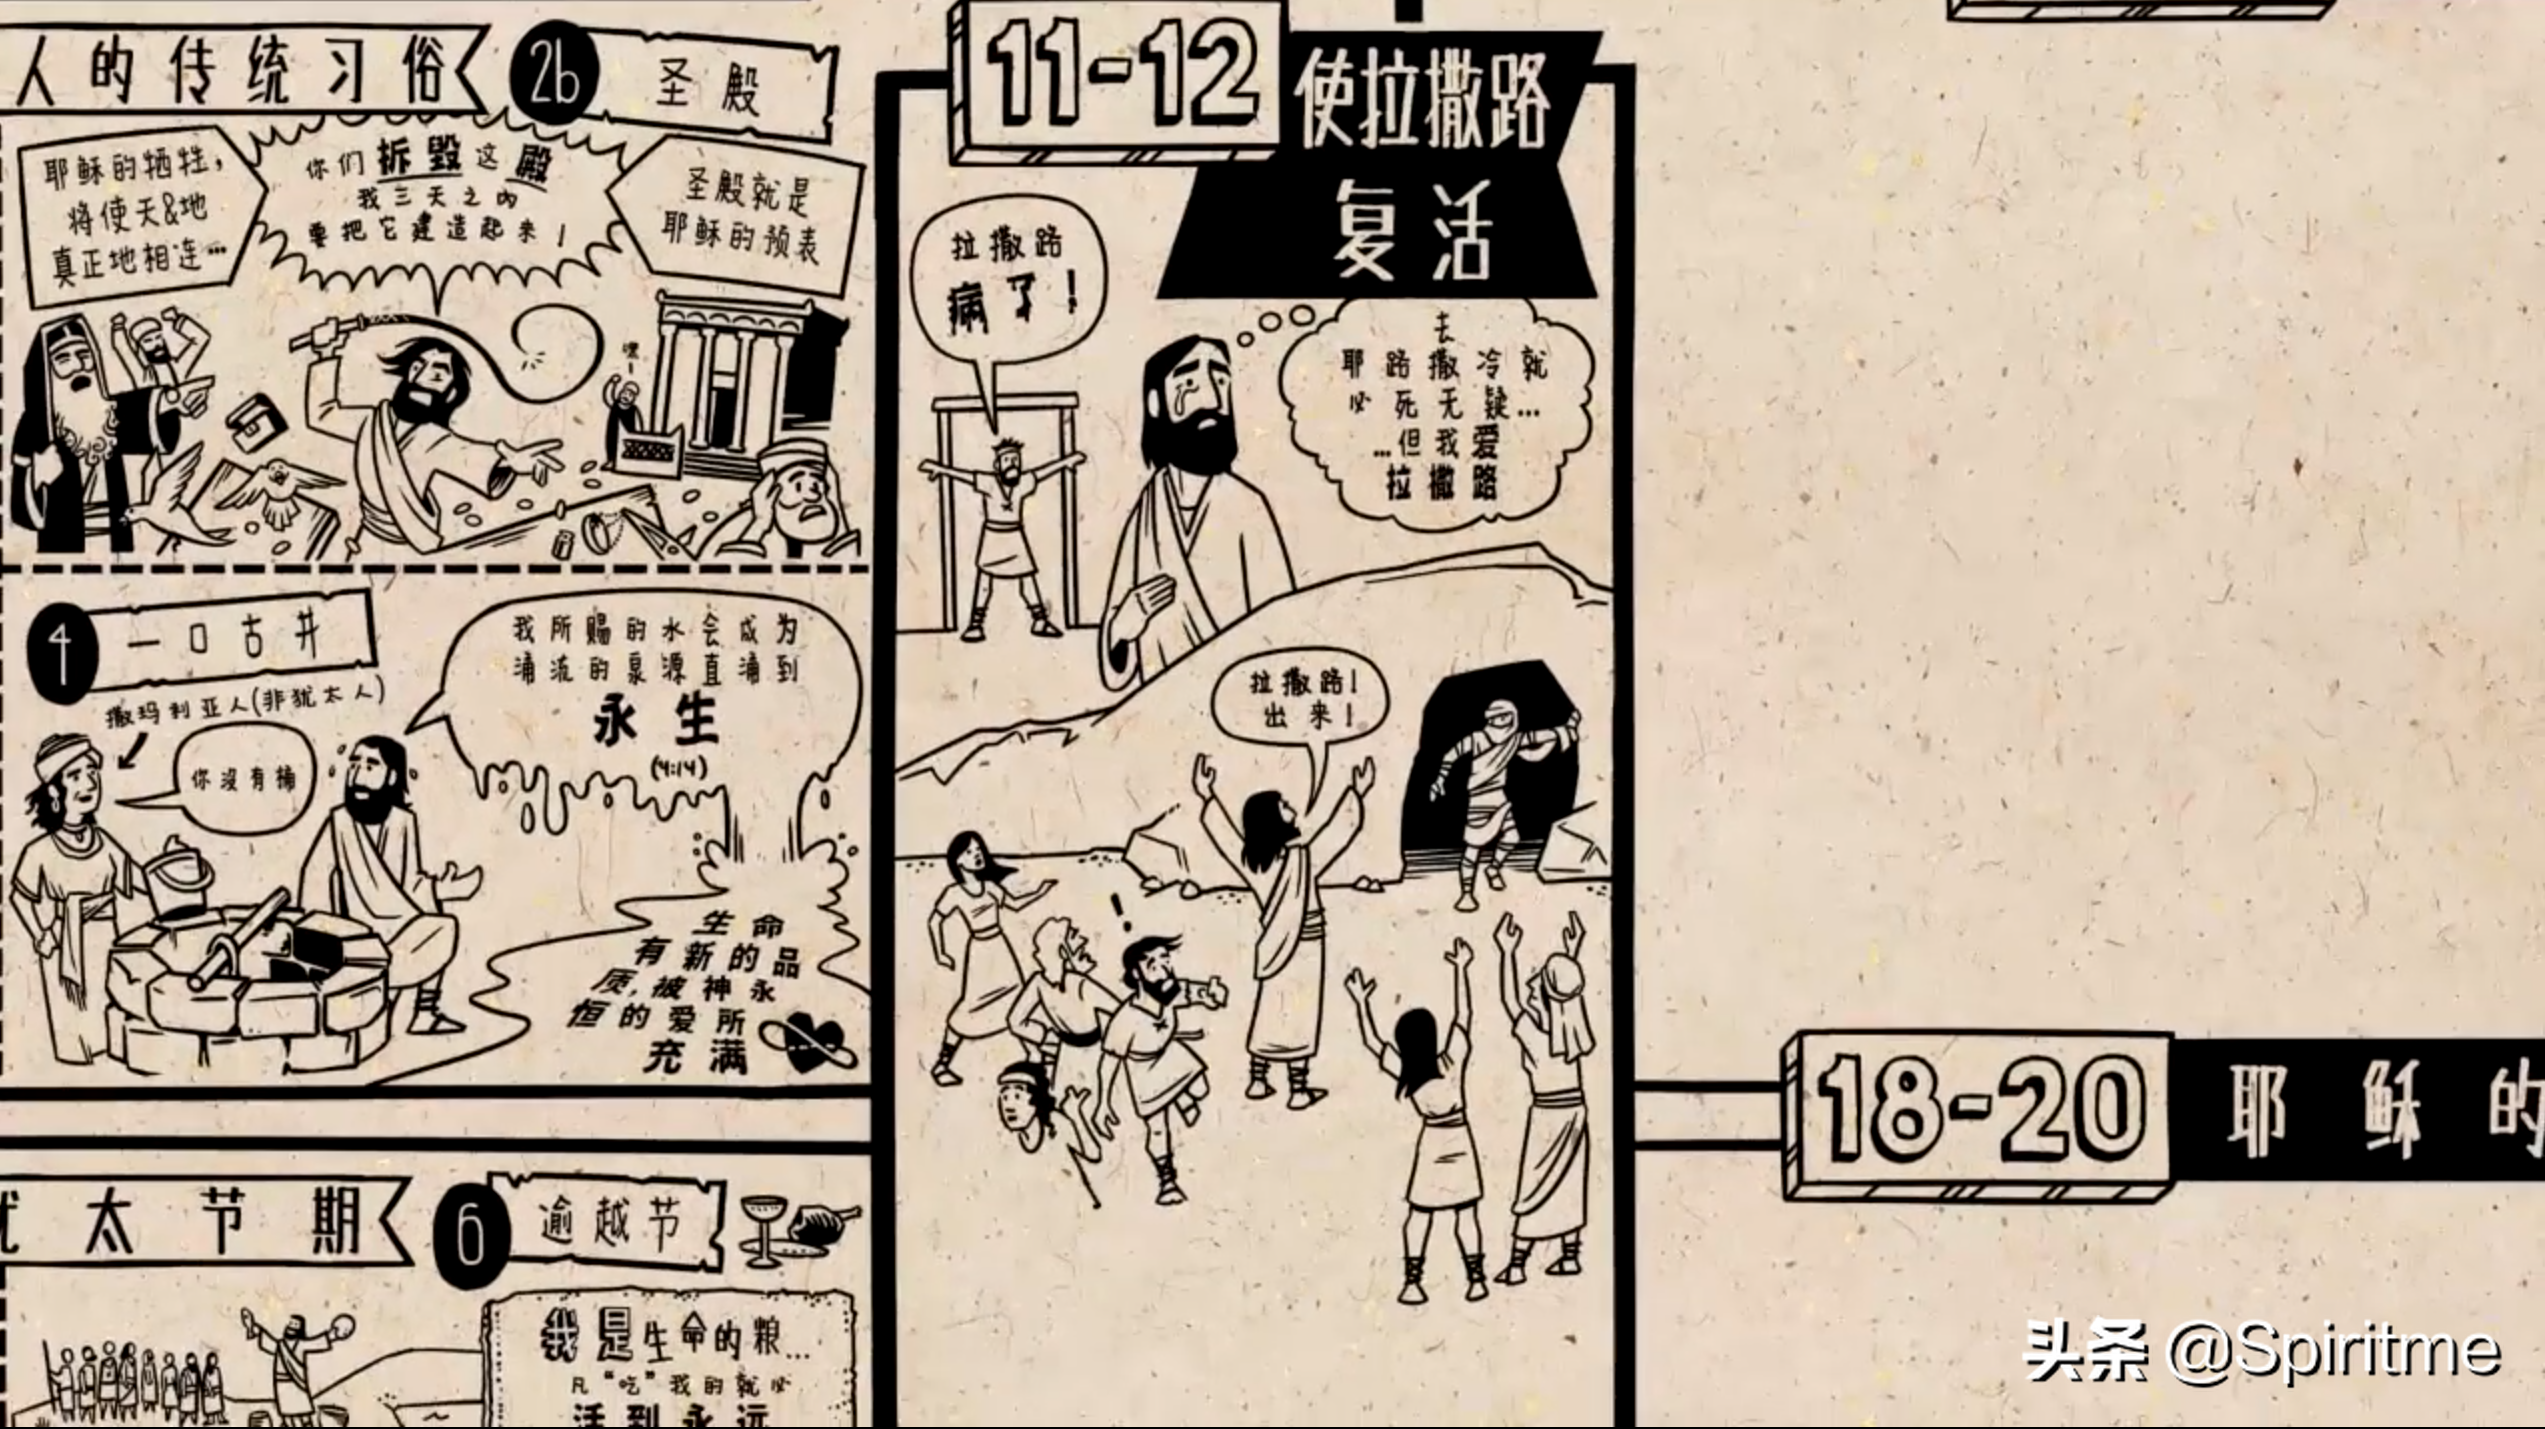 人的传统习俗
2b
圣殿
耶稣的牺牲，
将使天&地
真正地相连…
你们拆毁这殿
我三天之内
要把它建造起来！
圣殿就是
耶稣的预表
嘿
4
一口古井
撒玛利亚人(非犹太人)
你没有桶
我所赐的水会成为
涌流的泉源直涌到
永生
(4:14)
生命
有新的品
质，被神永
恒的爱所
充满
太节期
6
逾越节
我是生命的粮…
凡"吃"我的就必
活到永远
11-12
使拉撒路
复活
拉撒路
病了！
去
耶路撒冷就
必死无疑…
…但我爱
拉撒路
拉撒路！
出来！
!
18-20
耶稣的
头条 @Spiritme